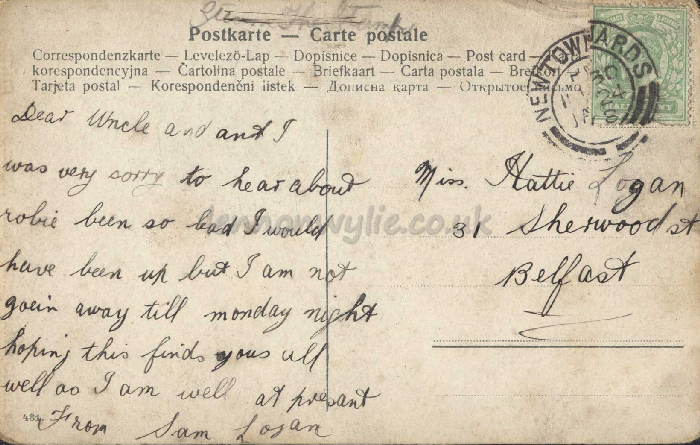 Postkarte — Carte postale
Correspondenzkarte — Levelező-Lap — Dopisnice — Dopisnica — Post card —
korespondencyjna — Cartolina postale — Briefkaart — Carta postala —
Tarjeta postal — Korespondenční listek — Дописна карта —
NEWTOWNARDS
Dear Uncle and ant I
was very sorry to hear about
robie been so bad I would
have been up but I am not
goein away till monday night
hoping this finds yous all
well as I am well at presant
From Sam Logan
Miss. Hattie Logan
31 Sherwood st
Belfast
lennonwylie.co.uk